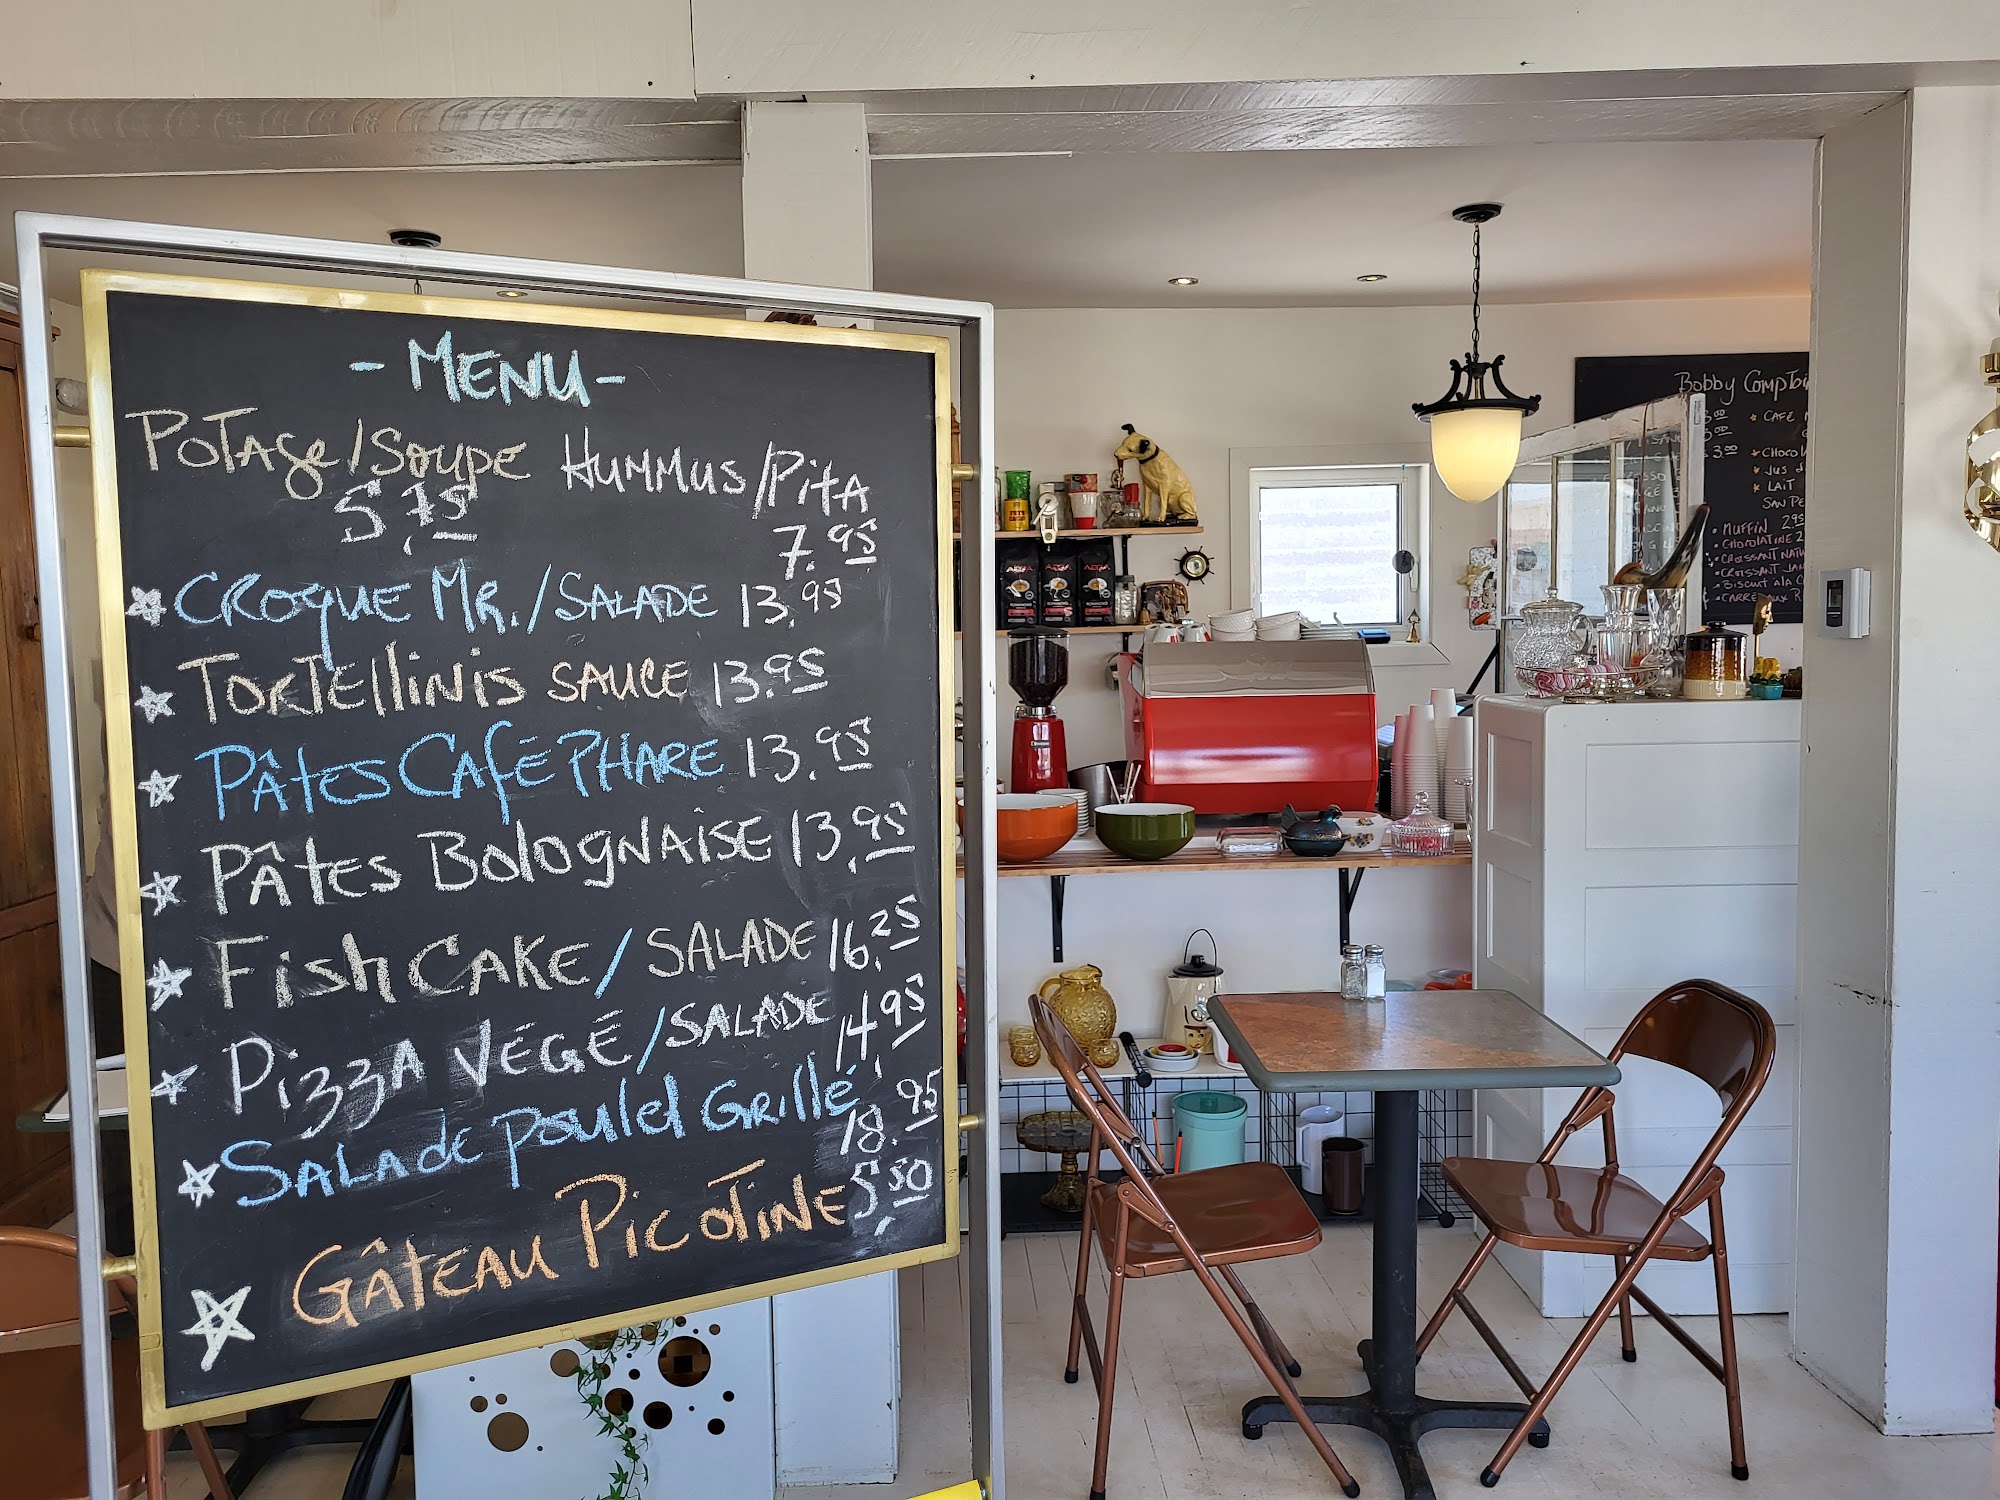 - MENU -
POTAGE/SOUPE HUMMUS/PITA
5,75 7.95
CROQUE MR./SALADE 13.95
TORTELLINIS SAUCE 13.95
PÂTES CAFÉ PHARE 13.95
PÂTES BOLOGNAISE 13,95
FISH CAKE/SALADE 16,25
PIZZA VÉGÉ/SALADE 14,95
SALADE POULET GRILLÉ 18.95
GÂTEAU PICOTINE 5,50
Bobby Comptoi
CAFÉ
3.00
CHOCOL
JUS d
LAIT
SAN PE
MUFFIN 2.95
CHOCOLATINE 2
CROISSANT NATU
CROISSANT JAM
BISCUIT à la C
CARRÉ AUX R